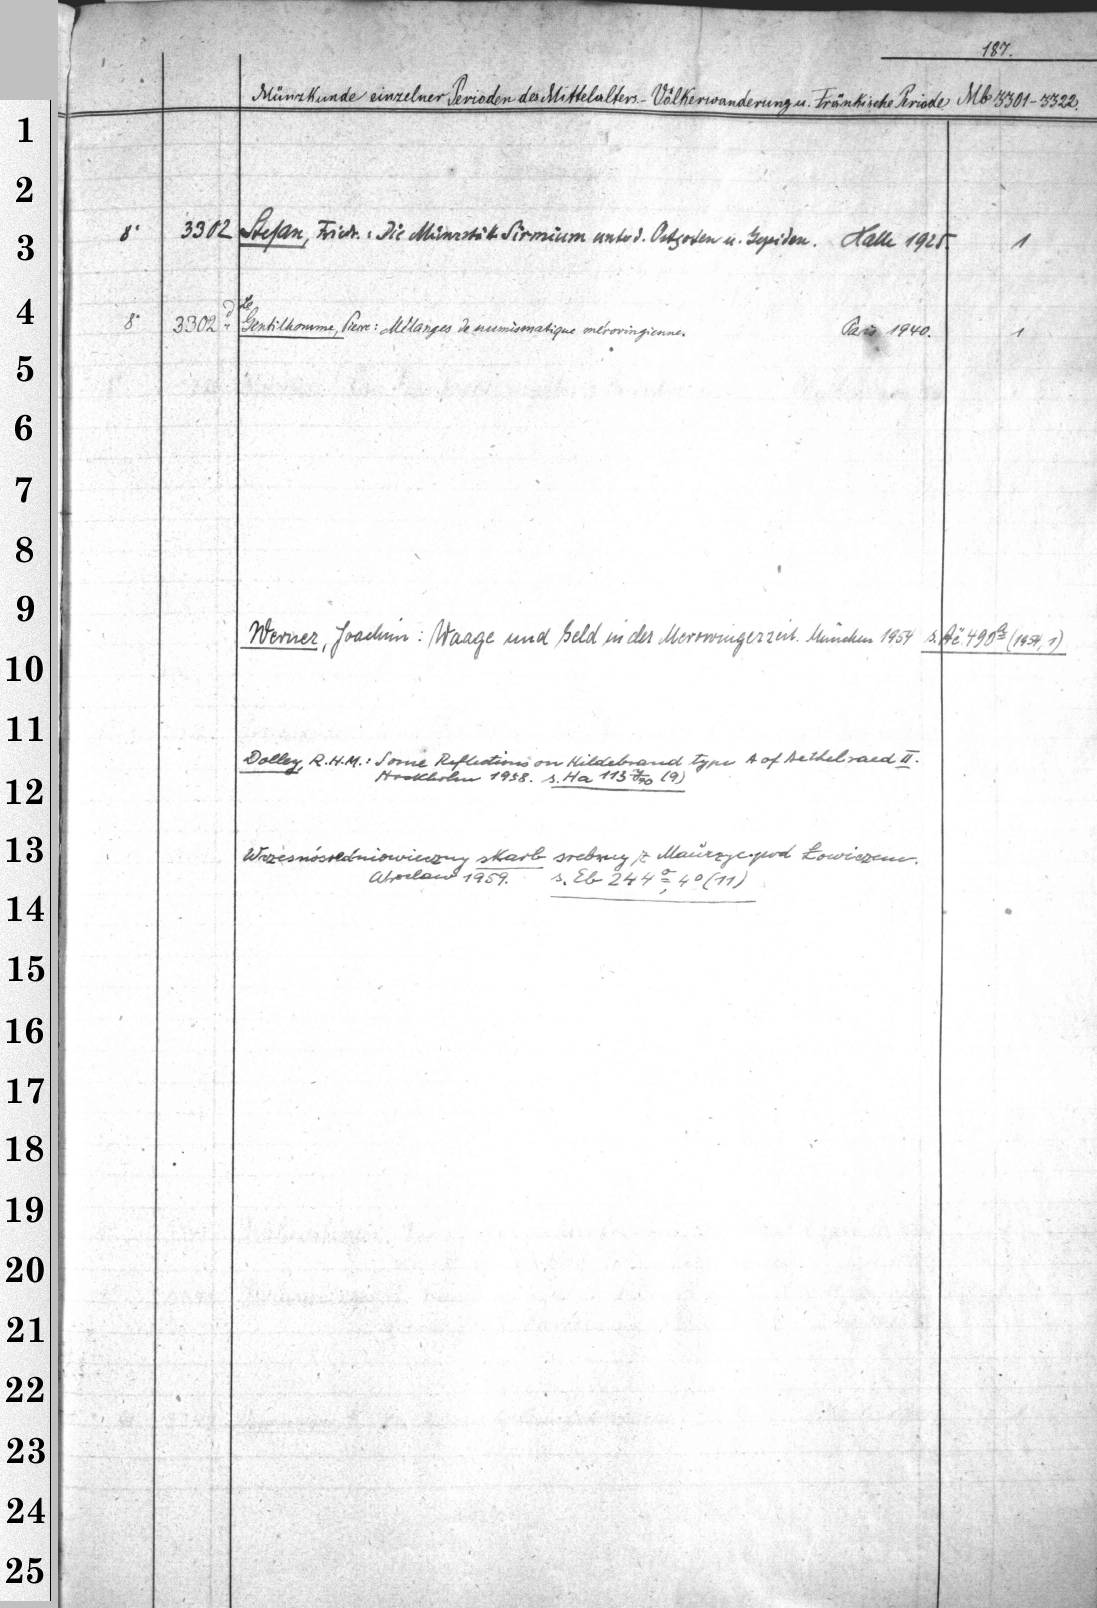 187.
Münzkunde einzelner Perioden des Mittelalters. - Völkerwanderung u. Fränkische Periode Mb 3301-3322.
1
2
3
8° 3302 Stefan, Friedr.: Die Münzstät. Sirmium unter d. Ostgoten u. Gepiden. Halle 1925. 1
4
8° 3302 d Le Gentilhomme, Pierre: Mélanges de numismatique mérovingienne. Paris 1940. 1
5
6
7
8
9
Werner, Joachim: Waage und Geld in der Merowingerzeit. München 1954 s. Aë 490 (1954, 1)
10
11
Dolley, R.H.M.: Some Reflections on Hildebrand type A of Aethelraed II.
12
Stockholm 1958. s. Ha 113 (9)
13
Wczesnośredniowieczny skarb srebrny z Maurzyc pod Łowiczem.
Wrocław 1959. s. Eb 244, 4° (11)
14
15
16
17
18
19
20
21
22
23
24
25